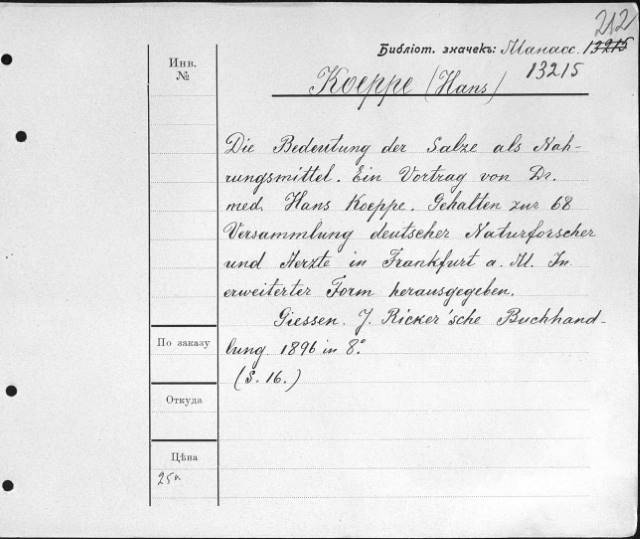 212
Библіот. значекъ: Манасс. 13215
13215
Инв.
№
Koeppe (Hans)
Die Bedeutung der Salze als Nah-
rungsmittel. Ein Vortrag von Dr.
med. Hans Koeppe. Gehalten zur 68
Versammlung deutscher Naturforscher
und Aerzte in Frankfurt a. M. In
erweiterter Form herausgegeben.
Giessen. J. Ricker'sche Buchhand-
lung 1896 in 8°.
(S. 16.)
По заказу
Откуда
Цѣна
25к